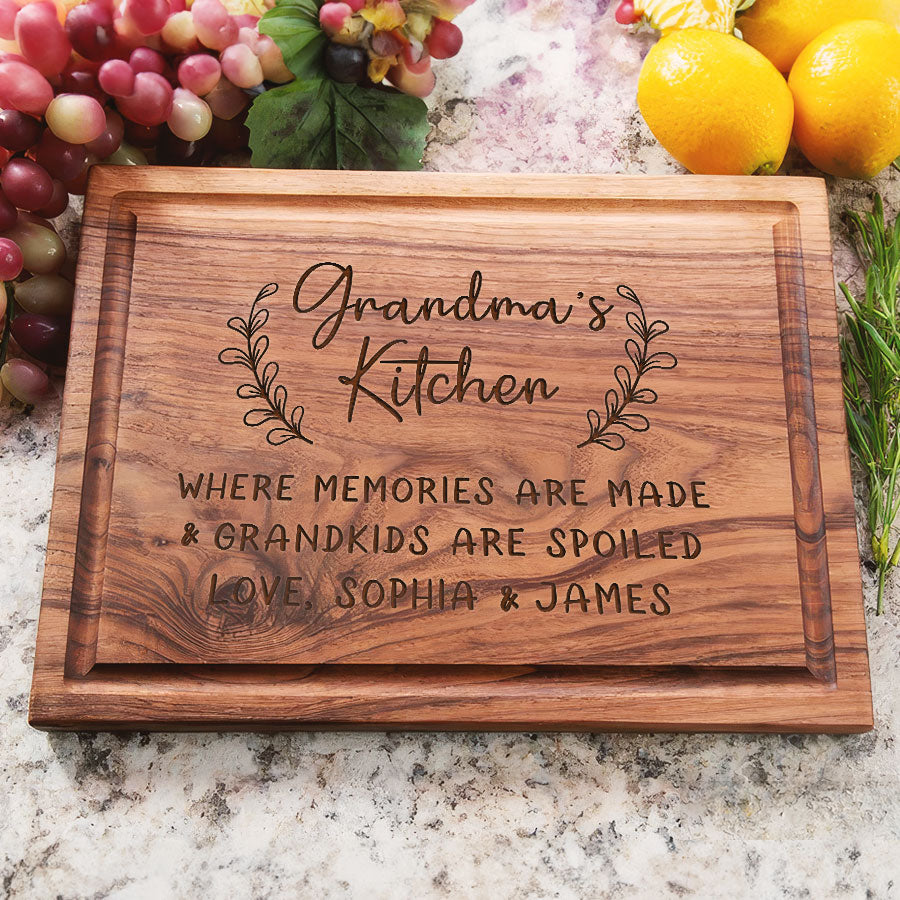 Grandma's
Kitchen
WHERE MEMORIES ARE MADE
& GRANDKIDS ARE SPOILED
LOVE, SOPHIA & JAMES